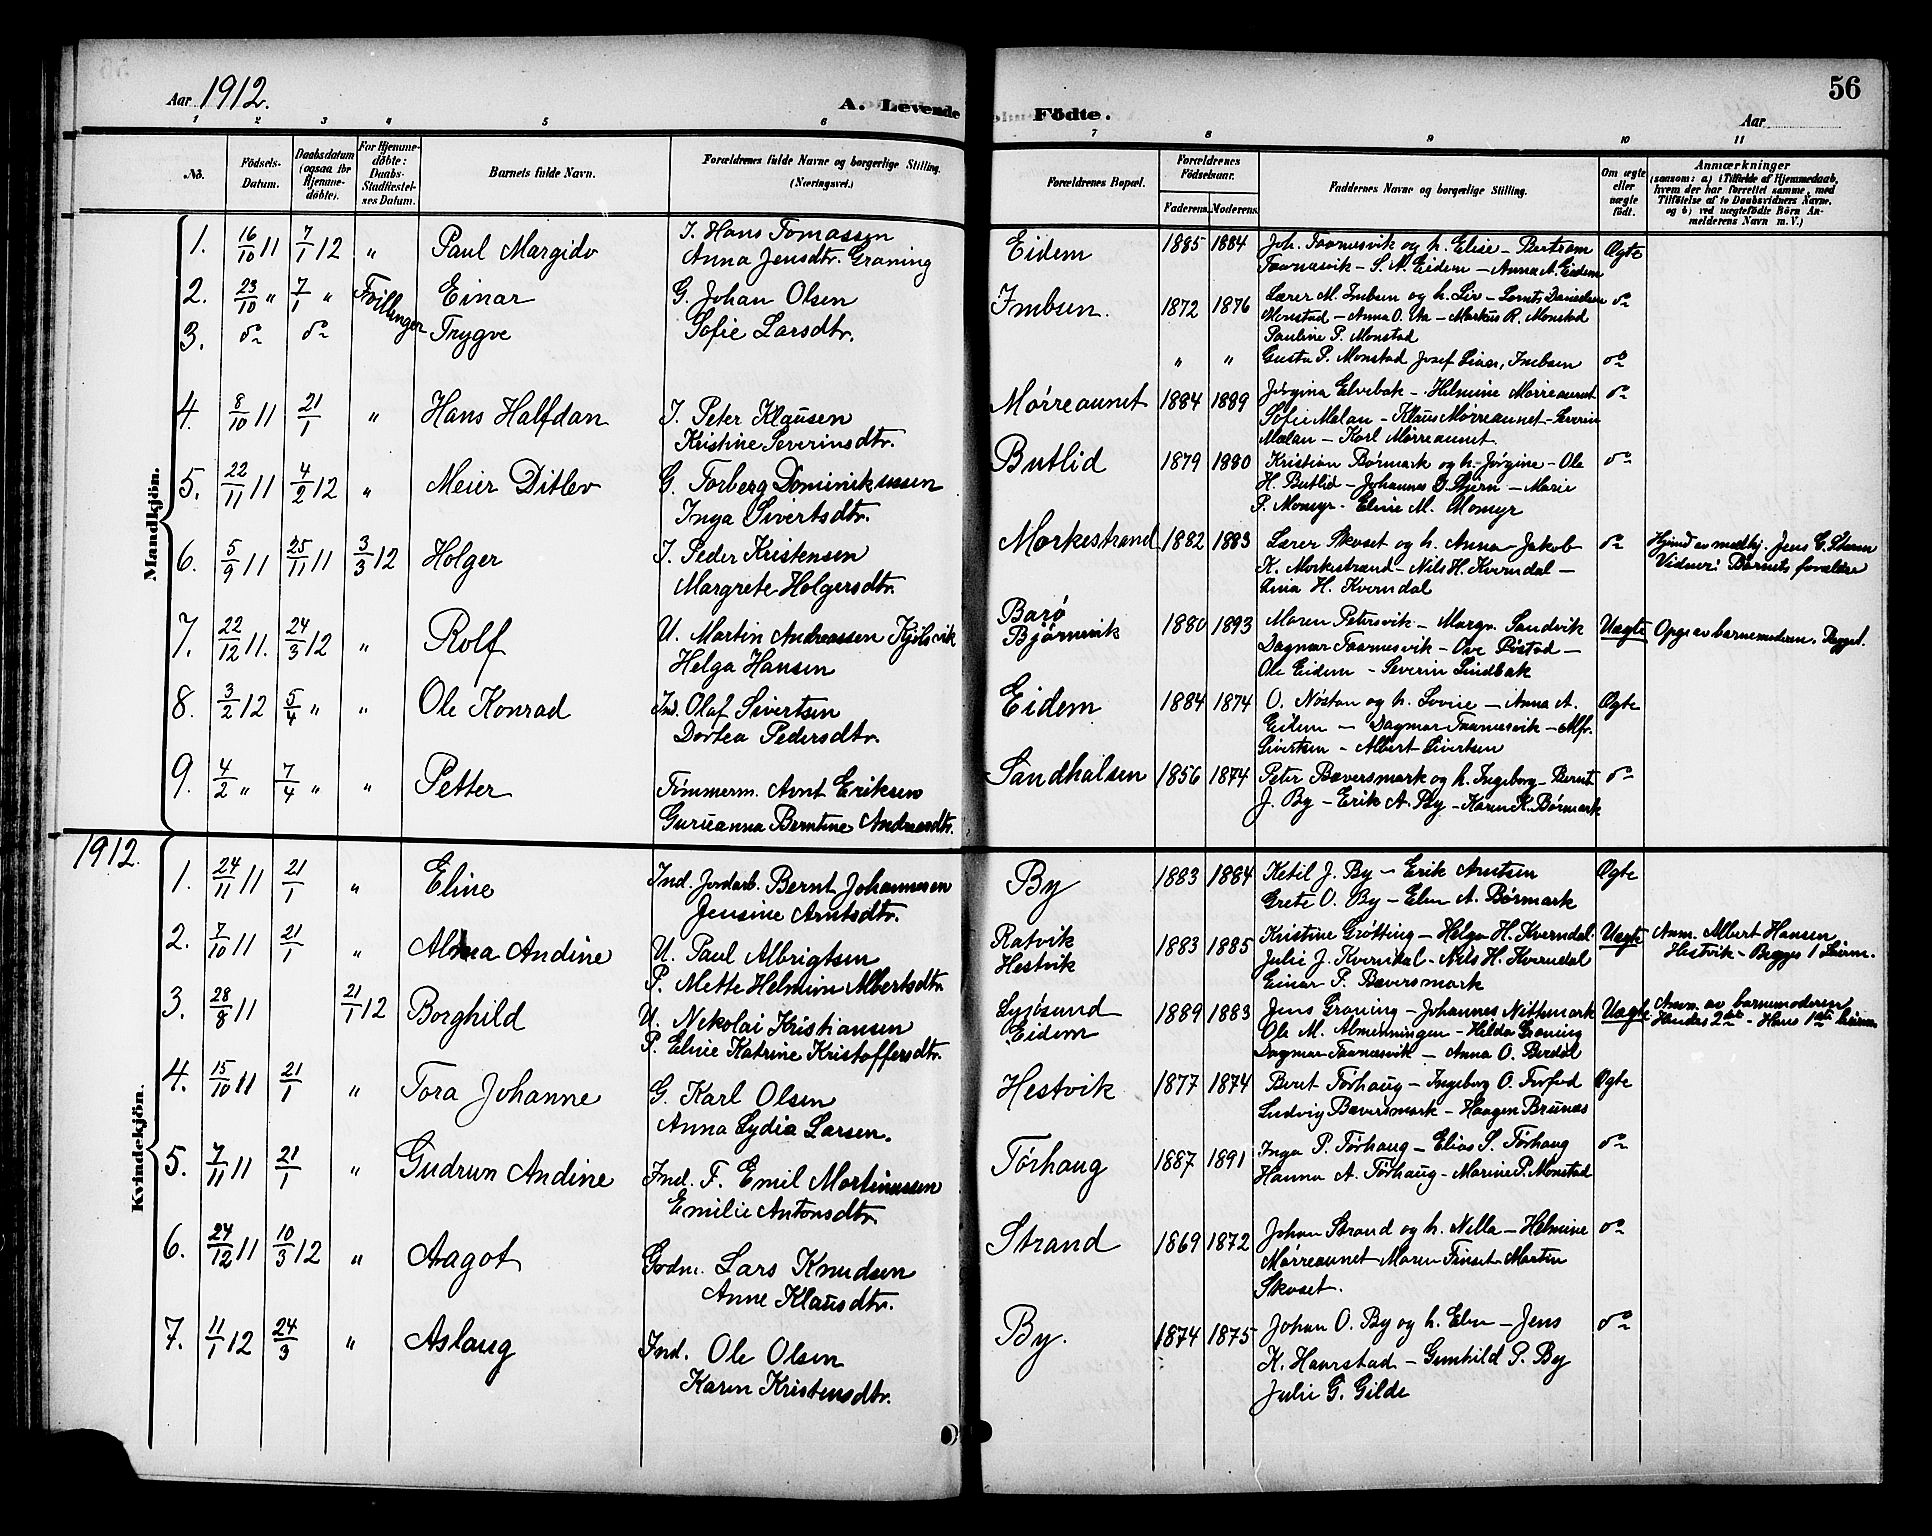 Aar 1912.
A. Levende Födte.
56
Aar
1 2 3 4 5 6 7 8 9 10 11
No.
Födsels-Datum.
Daabsdatum (ogsaa for Hjemmedøbte).
For Hjemmedøbte: Daabs-Stadfæstelses Datum.
Barnets fulde Navn.
Forældrenes fulde Navne og borgerlige Stilling. (Næringsvei.)
Forældrenes Bopæl.
Forældrenes Födselsaar.
Faderens. Moderens.
Faddernes Navne og borgerlige Stilling.
Om ægte eller uægte født.
Anmærkninger
(saasom: a) i Tilfælde af Hjemmedaab, hvem der har forrettet samme, med Tilföielse af to Daabsvidners Navne, og b) ved uægtefödte Börn Anmelderens Navn m.V.)
Mandkjön.
1. 16/10 11 7/1 12 " Paul Margido I. Hans Tomassen Eidem 1885 1884 Joh. Taarnesvik og h. Elise - Bertram Ægte
Anna Jensdtr. Graning Taarnesvik - S. N. Eidem - Anna A. Eidem
2. 23/10 " 7/1 " Tvillinger Einar G. Johan Olsen Imbsen. 1872 1876 Lærer M. Imbsen og h. Liv - Lornts Danielsen do
Monstad - Anna O. Ut - Markus R. Monstad
3. do do Trygve Sofie Larsdtr. Pauline P. Monstad
" " Gusta P. Monstad Josef Imbsen do
4. 8/10 11 21/1 " Hans Halfdan I. Peter Klausen Mørreaunet 1884 1889 Jørgina Elvebak - Helmine Mørreaunet do
Kristine Severinsdtr. Sofie Mælan - Klaus Mørreaunet - Severin
Mælan - Karl Mørreaunet.
5. 22/11 11 4/2 12 " Meier Ditlev G. Torberg Dominikussen Butlid 1879 1880 Kristian Børmark og h. Jørgine - Ole do
Inga Sivertsdtr. H. Butlid - Johannes Stjern - Marie
P. Momyr - Eline M. Momyr
6. 5/9 11 25/11 11 3/3 12 Holger I. Peder Kristensen Morkestrand 1882 1883 Lærer Skoset og h. Anna - Jakob do Hjemd av medhj. Jens C. Stavn
Margrete Holgersdtr. K. Morkestrand - Nils H. Kverndal - Vidner: Barnets forældre
Lina H. Kverndal
7. 22/12 11. 24/3 12 " Rolf U. Martin Andreassen Kjølsvik Barø 1880 1893 Maren Petersvik - Margr. Sandvik Uægte Opg. av barnemoderen.
Helga Hansen Bjørnevik Dagmar Taarnesvik - Ove
Ole Eidem - Severin Lindbak
8. 3/2 12 5/4 " " Ole Konrad Ind. Olaf Sivertsen Eidem 1884 1874 O. Nøstan og h. Lovise - Anna A. Ægte
Dortea Pedersdtr. Eidem - Dagmar Taarnesvik - Alfr.
Sivertsen - Albert Sivertsen
9. 4/2 " 7/4 " " Petter Tömmerm. Arnt Eriksen Sandhalsen 1856 1874 Peter Bæversmark og h. Ingeborg - Bernt do
Guruanna Berntine Andreasdtr. J. By - Erik A. By - Karen K. Børmark
1912.
Kvindekjön.
1. 24/11 11 21/1 " Eline Ind. Jordarb. Bernt Johannesen By 1883 1884 Ketil J. By - Erik Arntsen Ægte
Jensine Arntsdtr. Grete O. By - Elen A. Børmark
2. 7/10 11 21/1 " Alma Andine U. Paul Albrigtsen Ratvik 1883 1885 Kristine Grøtting - Helga H. Kverndal Uægte Anm. Albert Hansen
P. Mette Helmine Albertsdtr. Hestvik Julie J. Kverndal - Nils H. Kverndal Hestvik - Begges 1
Einar P. Bæversmark
3. 28/8 11 21/1 12 Borghild U. Nikolai Kristiansen Lysøsund 1889 1883 Jens Graning - Johannes Nittemark Uægte Anm. av barnemoderen
P. Elise Katrine Kristoffersdtr. Eidem Ole M. Almenningen - Hilda Graning Hendes 2det - Hans 1ste
Dagmar Taarnesvik - Anna O. Berdal
4. 15/10 11 21/1 " Tora Johanne G. Karl Olsen Hestvik 1877 1874 Beret Tørhaug - Ingeborg O. Furfod Ægte
Anna Lydia Larsen. Ludvig Bæversmark - Haagen Brunæs
5. 7/11 11 21/1 " Gudrun Andine Ind. F. Emil Martinussen Tørhaug 1887 1891 Inga P. Tørhaug - Elias S. Tørhaug do
Emilie Antonsdtr. Hanna A. Tørhaug - Marine P. Monstad
6. 24/12 11 10/3 12 " Aagot Gvdm. Lars Knudsen Strand 1869 1872 Johan Strand og h. Nella - Helmine do
Anne Klausdtr. Mørreaunet Maren Finset - Martin
Skoset.
7. 11/1 12 24/3 " Aslaug Ind. Ole Olsen By. 1874 1875 Johan O. By og h. Elen - Jens do
Karen Kristensdtr. K. Haarstad - Gunhild P. By
Julie G. Gilde